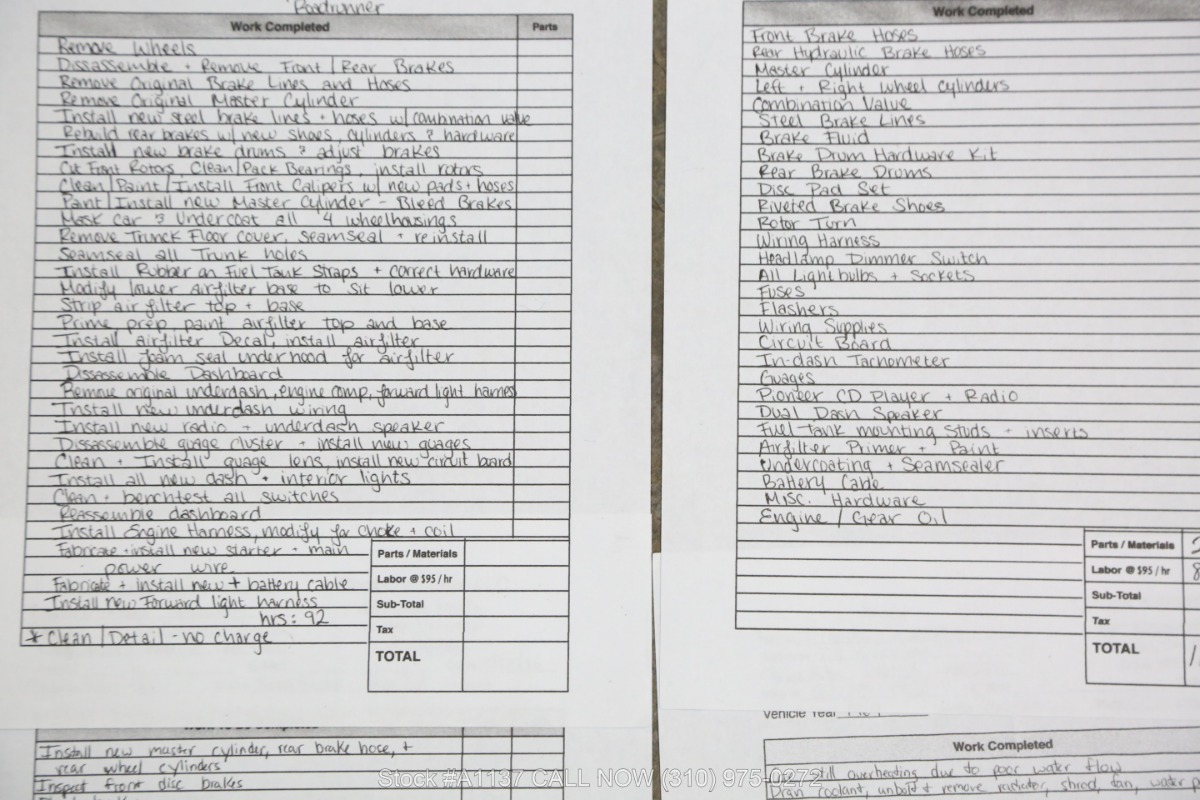 Roadrunner
Work Completed Parts
Remove Wheels
Dissassemble + Remove Front/Rear Brakes
Remove Original Brake Lines and Hoses
Remove Original Master Cylinder
Install new steel brake lines + hoses w/combination valve
Rebuild rear brakes w/ new shoes, cylinders & hardware
Install new brake drums & adjust brakes
Cut Front Rotors, Clean/Pack Bearings, install rotors
Clean/Paint/Install Front Calipers w/ new pads + hoses
Paint/Install new Master Cylinder - Bleed Brakes
Mask Car & Undercoat all 4 wheelhousings
Remove Trunck Floor cover, seamseal + reinstall
Seamseal all Trunk holes
Install Rubber on Fuel Tank Straps + correct hardware
Modify lower airfilter base to sit lower
Strip air filter top + base
Prime, prep, paint airfilter top and base
Install airfilter Decal, install airfilter
Install foam seal underhood for airfilter
Dissassemble Dashboard
Remove original underdash, engine comp, forward light harness
Install new underdash wiring
Install new radio + underdash speaker
Dissassemble guage cluster + install new guages
Clean + Install guage lens, install new circuit board
Install all new dash + interior lights
Clean + benchtest all switches
Reassemble dashboard
Install Engine Harness, modify for choke + coil
Fabricate + install new starter + main
power wire
Fabricate + install new + battery cable
Install new Forward light harness
hrs: 92
* Clean/Detail - no charge
Parts / Materials
Labor @ $95 / hr
Sub-Total
Tax
TOTAL
Work Completed
Front Brake Hoses
Rear Hydraulic Brake Hoses
Master Cylinder
Left + Right wheel cylinders
Combination Valve
Steel Brake Lines
Brake Fluid
Brake Drum Hardware Kit
Rear Brake Drums
Disc Pad Set
Riveted Brake Shoes
Rotor Turn
Wiring Harness
Headlamp Dimmer Switch
All Lightbulbs + Sockets
Fuses
Flashers
Wiring Supplies
Circuit Board
In-dash Tachometer
Guages
Pioneer CD Player + Radio
Dual Dash Speaker
Fuel Tank mounting Studs + inserts
Airfilter Primer + Paint
Undercoating + Seamsealer
Battery Cable
Misc. Hardware
Engine / Gear Oil
Parts / Materials 2
Labor @ $95 / hr 8
Sub-Total
Tax
TOTAL 1
Install new master cylinder, rear brake hose, +
rear wheel cylinders
Inspect front disc brakes
Vehicle Year
Work Completed
still overheating due to poor water flow
Drain coolant, unbolt + remove radiator, shroud, fan, water
Stock #A1137 CALL NOW (310) 975-0272